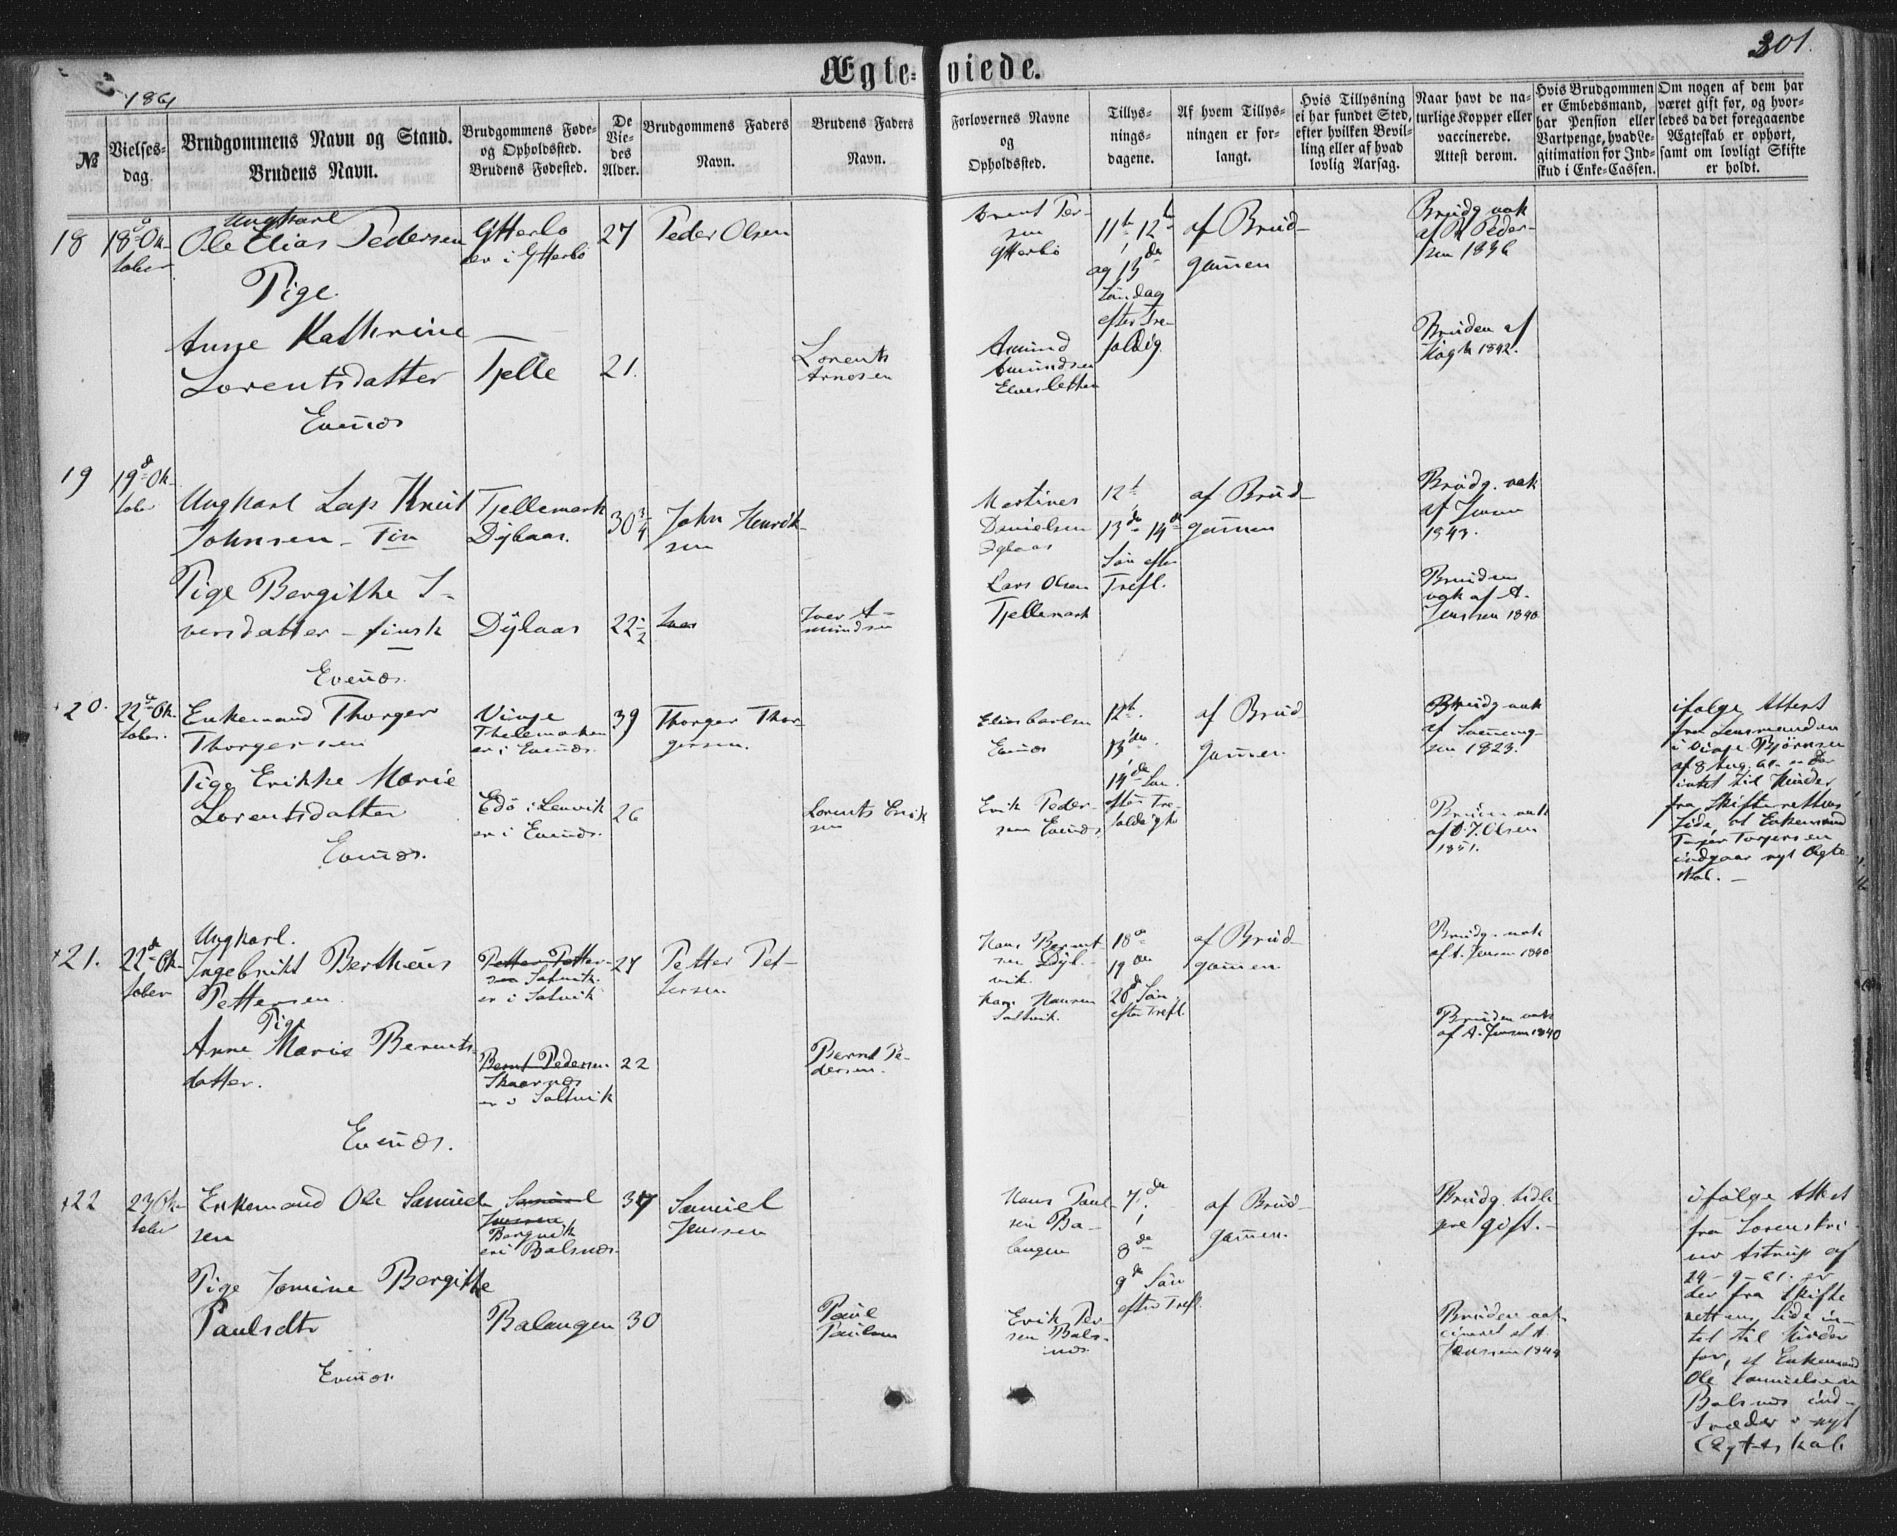 Ægte-viede.
301.
1861
№
Vielses-
dag.
Brudgommens Navn og Stand.
Brudens Navn.
Brudgommens Føde-
og Opholdssted.
Brudens Fødested.
De
Vie-
des
Alder.
Brudgommens Faders
Navn.
Brudens Faders
Navn.
Forlovernes Navne
og
Opholdssted.
Tillys-
nings-
dagene.
Af hvem Tillys-
ningen er for-
langt.
Hvis Tillysning
ei har fundet Sted,
efter hvilken Bevil-
ling eller af hvad
lovlig Aarsag.
Naar havt de na-
turlige Kopper eller
vaccinerede.
Attest derom.
Hvis Brudgommen
er Embedsmand,
har Pension eller
Vartpenge, hvad Le-
gitimation for Ind-
skud i Enke-Cassen.
Om nogen af dem har
været gift før, og hvor-
ledes da det foregaaende
Ægteskab er ophørt,
samt om lovligt Skifte
er holdt.
18
18de Ok-
tober
Ungkarl
Ole Elias Pedersen
Pige
Anne Kathrine
Lorentsdatter
Evenæs
Ytterbo
er i Ytterbo
Tjelle
27
21.
Peder Olsen
Lorents
Arnesen
Arent Per-
sen
Ytterbö
Amund
Amundsen
Elvesletten
11te 12te
og 13de
Söndag
efter Tre-
foldig.
af Brud-
gommen
Brudg vak
af Pl Peder-
sen 1836
Bruden af
Hogh 1842.
19
19de Ok-
tober
Ungkarl Lap Knut
Johnsen - Fin
Pige Bergithe I-
versdatter - finsk
Evenæs.
Tjellemark
Dÿbaas.
Dÿbaas
30 3/4
22 1/2
John Henrik-
sen
Iver A-
mundsen
Martines
Danielsen
Dybaas
Lars Olsen
Tjellemark
12te
13de 14de
Sön efter
Trefl.
af Brud-
gommen
Brudg. vak
af Jensen
1843.
Bruden
vak af A.
Jenssen 1840
20.
22de Ok-
tober.
Enkemand Thorger
Thorgersen
Pige Erikke Marie
Lorentsdatter
Evenæs.
Vinje
Thelemarken
er i Evenæs.
Edö i Lenvik
er i Evenæs.
39
26
Thorger Thor-
gersen.
Lorents Erik
sen
Elias Carlsen
Evenæs
Erik Peder-
sen Evenæs
12te.
13de.
14de Sön.
efter Tre-
foldigh
af Brud
gommen.
Brudg vak
af Svenung-
sen 1823.
Bruden vak
af O. J. Olsen
1851.
ifølge Attest
fra Lensmanden
i Vinje Bjørnsen
af 8 Aug. 60 er der
intet til Hinder
fra Skifterettens
Side, at Enkemand
Torjer Torjersen
indgaar nyt Ægte
skab. -
21.
22de Ok-
tober
Ungkarl.
Ingebrikt Bertheus
Pettersen.
Pige
Anne Marie Berents-
datter.
Evenæs.
Petter Petter-
sen Satvik
er i Satvik
Bernt Pedersen
Skaarnæs
er i Saltvik
27
22
Petter Pet-
tersen
Bernt Pe-
dersen.
Hans Bernt-
sen Dÿb-
vik.
Hans Hansen
Saltvik.
18de
19de
20de Sön
efter Trefl.
af Brud-
gommen.
Brudg. vak
af A. Jensen 1840
Bruden vak
af A. Jensen 1840
22
23 Ok-
tober
Enkemand Ole Samuel-
sen
Pige Jomine Bergithe
Paulsdtr
Evenæs.
Samuel
Jenssen
Borgvik
er i Balsnæs
Balangen
37
30
Samuel
Jenssen
Paul
Paulsen
Hans Paul-
sen Ba-
langen
Erik Per-
sen Bals-
næs.
7de.
8de
9de Sön
efter Trefl.
af Brud-
gommen.
Brudg. tidli
gere gift.
Bruden vak-
cineret af A
Jenssen 1844
ifølge Attest
fra Sorenskri-
ver Astrup af
24-9-61. er
der fra Skifte
rettens Side in-
tet til Hinder
for, at Enkemand
Ole Samuelsen
Balsnæs ind-
træder i nyt
Ægteskab